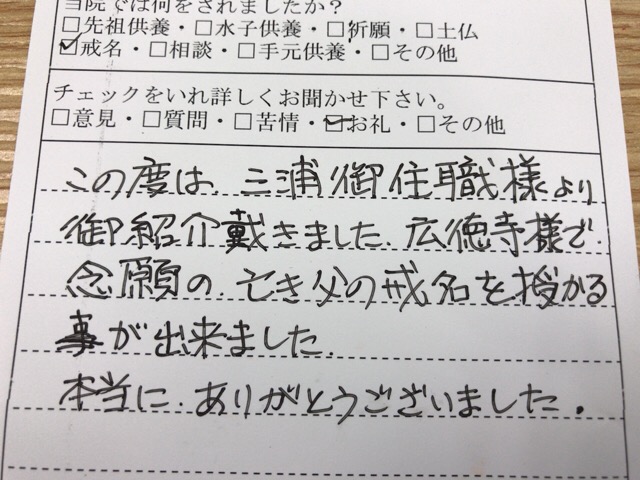 当院では何をされましたか？
□先祖供養・□水子供養・□祈願・□土仏
☑戒名・□相談・□手元供養・□その他
チェックをいれ詳しくお聞かせ下さい。
□意見・□質問・□苦情・☑お礼・□その他
この度は、三浦御住職様より
御紹介戴きました、広徳寺様で
念願の、亡き父の戒名を授かる
事が出来ました。
本当に、ありがとうございました。